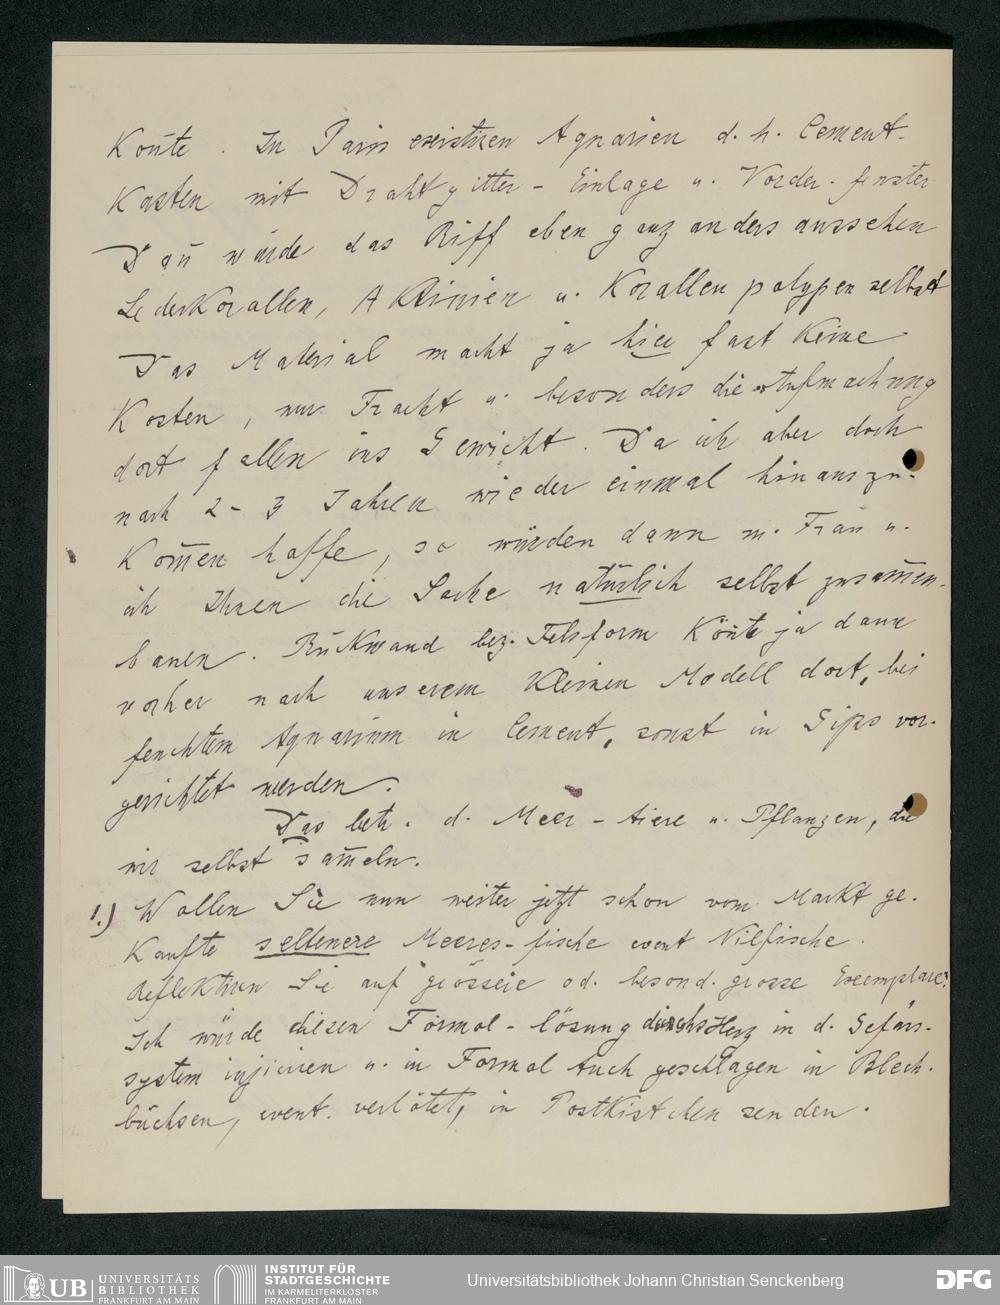 Kon̄te. In Paris existiren Aquarien d. h. Cement-
Kasten mit Drahtgitter-Einlage u. Vorder-fenster
Dan̄ würde das Riff eben ganz anders aussehen
Lederkorallen, Aktinien u. Korallenpolypen selbst
Das Material macht ja hier fast keine
Kosten, nur Fracht u. besonders die Aufmachung
dort fallen ins Gewicht. Da ich aber doch
nach 2-3 Jahren wieder einmal hinauszu-
kom̄en hoffe, so würden dann m. Frau u.
ich Ihnen die Sache natürlich selbst zusam̄en-
bauen. Rückwand bez. Felsform kön̄te ja dann
vorher nach unserem kleinen Modell dort, bei
feuchtem Aquarium in Cement, sonst in Gips vor-
gerichtet werden.
Das betr. d. Meer-tiere u. Pflanzen, die
wir selbst sam̄eln.
1.) Wollen Sie nun weiter jetzt schon vom Markt ge-
kaufte seltenere Meeres-fische event Nilfische.
Reflektiren Sie auf grössere od. besond. grosse Exemplare?
Ich würde diesen Formol-lösung durchs Herz in d. Gefäss-
system injiciren u. in Formol tuch geschlagen in Blech-
büchsen, event. verlötet, in Postkistchen senden.
UB UNIVERSITÄTS
BIBLIOTHEK
FRANKFURT AM MAIN
INSTITUT FÜR
STADTGESCHICHTE
IM KARMELITERKLOSTER
FRANKFURT AM MAIN
Universitätsbibliothek Johann Christian Senckenberg
DFG